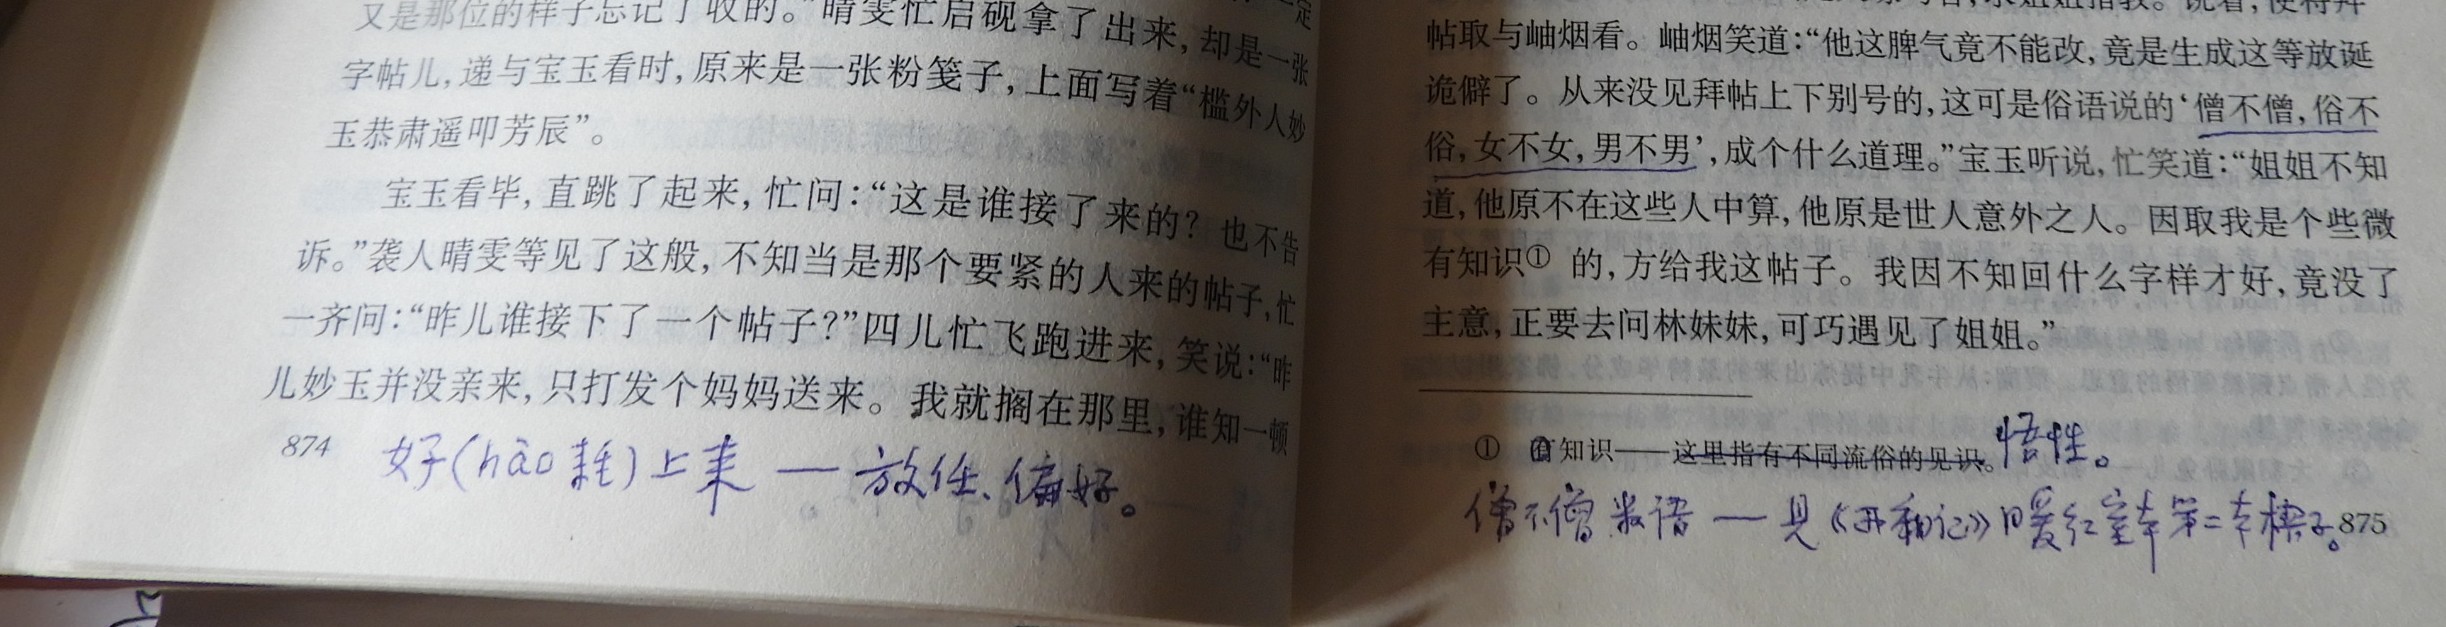 又是那位的样子忘记了收的。”晴雯忙启砚拿了出来，却是一张
字帖儿，递与宝玉看时，原来是一张粉笺子，上面写着“槛外人妙
玉恭肃遥叩芳辰”。
宝玉看毕，直跳了起来，忙问：“这是谁接了来的？也不告
诉。”袭人晴雯等见了这般，不知当是那个要紧的人来的帖子，忙
一齐问：“昨儿谁接下了一个帖子？”四儿忙飞跑进来，笑说：“昨
儿妙玉并没亲来，只打发个妈妈送来。我就搁在那里，谁知一顿
874
好(hào 耗)上来 — 放任、偏好。
帖取与岫烟看。岫烟笑道：“他这脾气竟不能改，竟是生成这等放诞
诡僻了。从来没见拜帖上下别号的，这可是俗语说的‘僧不僧，俗不
俗，女不女，男不男’，成个什么道理。”宝玉听说，忙笑道：“姐姐不知
道，他原不在这些人中算，他原是世人意外之人。因取我是个些微
有知识① 的，方给我这帖子。我因不知回什么字样才好，竟没了
主意，正要去问林妹妹，可巧遇见了姐姐。”
① 知识——这里指有不同流俗的见识。悟性。
僧不僧数语 — 见《西厢记》暖红室本第二本楔子。
875